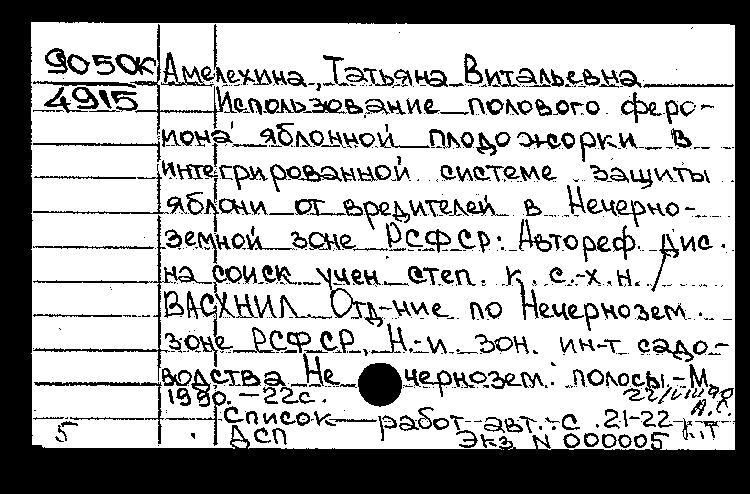 9050К Амелехина, Татьяна Витальевна
4915 Использование полового феро-
мона яблонной плодожорки в
интегрированной системе защиты
яблони от вредителей в Нечерно-
земной зоне РСФСР: Автореф. дис.
на соиск. учен. степ. к. с.-х. н. /
ВАСХНИЛ. Отд-ние по Нечернозем.
зоне РСФСР, Н.-и. зон. ин-т садо-
водства Не чернозем. полосы.-М.
1990.-22с.
Список работ авт.:-с. 21-22
5 ДСП Экз N 000005 К.Т